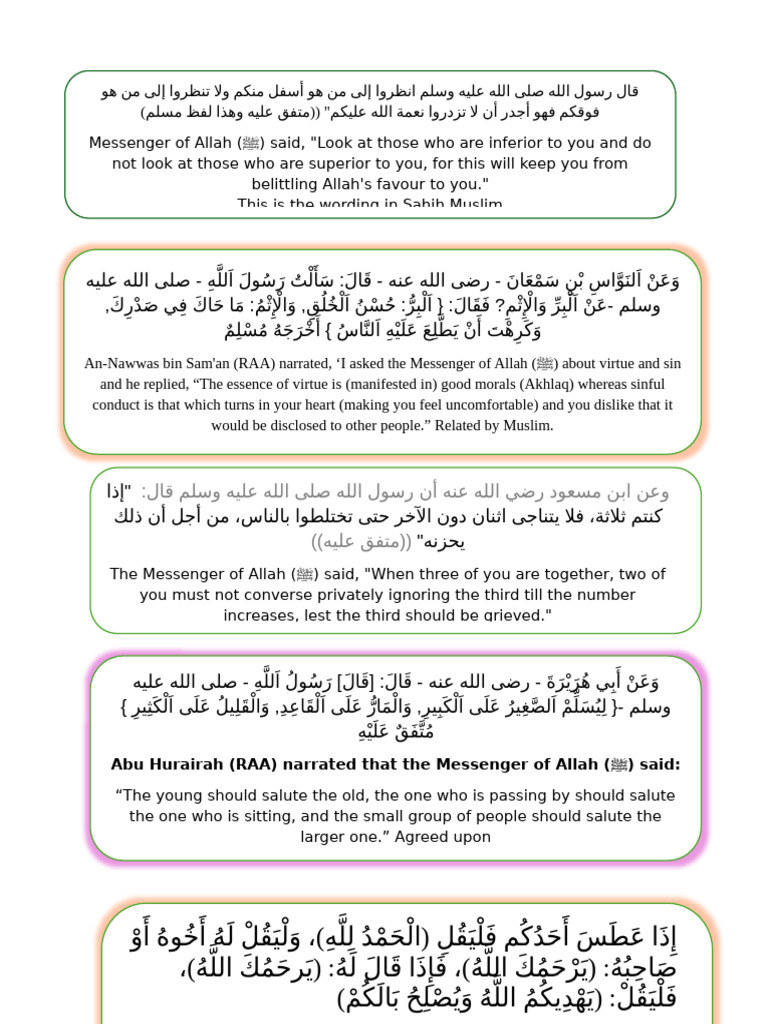 قال رسول الله صلى الله عليه وسلم انظروا إلى من هو أسفل منكم ولا تنظروا إلى من هو
فوقكم فهو أجدر أن لا تزدروا نعمة الله عليكم" ((متفق عليه وهذا لفظ مسلم)
Messenger of Allah (ﷺ) said, "Look at those who are inferior to you and do
not look at those who are superior to you, for this will keep you from
belittling Allah's favour to you."
This is the wording in Sahih Muslim
وَعَنْ اَلنَوَّاسِ بْنِ سَمْعَانَ - رضى الله عنه - قَالَ: سَأَلْتُ رَسُولَ اَللَّهِ - صلى الله عليه
وسلم -عَنْ اَلْبِرِّ وَالْإِثْمِ? فَقَالَ: { اَلْبِرُّ: حُسْنُ اَلْخُلُقِ, وَالْإِثْمُ: مَا حَاكَ فِي صَدْرِكَ,
وَكَرِهْتَ أَنْ يَطَّلِعَ عَلَيْهِ اَلنَّاسُ } أَخْرَجَهُ مُسْلِمٌ
An-Nawwas bin Sam'an (RAA) narrated, ‘I asked the Messenger of Allah (ﷺ) about virtue and sin
and he replied, “The essence of virtue is (manifested in) good morals (Akhlaq) whereas sinful
conduct is that which turns in your heart (making you feel uncomfortable) and you dislike that it
would be disclosed to other people.” Related by Muslim.
وعن ابن مسعود رضي الله عنه أن رسول الله صلى الله عليه وسلم قال: "إذا
كنتم ثلاثة، فلا يتناجى اثنان دون الآخر حتى تختلطوا بالناس، من أجل أن ذلك
يحزنه" ((متفق عليه))
The Messenger of Allah (ﷺ) said, "When three of you are together, two of
you must not converse privately ignoring the third till the number
increases, lest the third should be grieved."
وَعَنْ أَبِي هُرَيْرَةَ - رضى الله عنه - قَالَ: [قَالَ] رَسُولُ اَللَّهِ - صلى الله عليه
وسلم -{ لِيُسَلِّمْ اَلصَّغِيرُ عَلَى اَلْكَبِيرِ, وَالْمَارُّ عَلَى اَلْقَاعِدِ, وَالْقَلِيلُ عَلَى اَلْكَثِيرِ }
مُتَّفَقٌ عَلَيْهِ
Abu Hurairah (RAA) narrated that the Messenger of Allah (ﷺ) said:
“The young should salute the old, the one who is passing by should salute
the one who is sitting, and the small group of people should salute the
larger one.” Agreed upon
إِذَا عَطَسَ أَحَدُكُم فَلْيَقُلِ (الْحَمْدُ لِلَّهِ)، وَلْيَقُلْ لَهُ أَخُوهُ أَوْ
صَاحِبُهُ: (يَرْحَمُكَ اللَّهُ)، فَإِذَا قَالَ لَهُ: (يَرحَمُكَ اللَّهُ)،
فَلْيَقُلْ: (يَهْدِيكُمُ اللَّهُ وَيُصْلِحُ بَالَكُمْ)